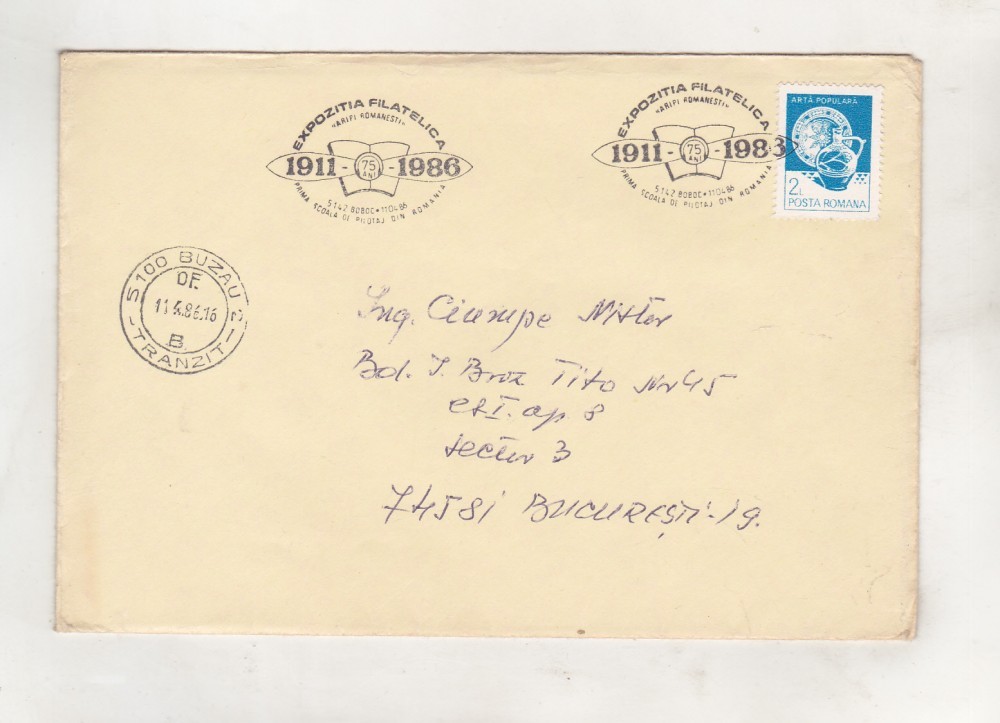 EXPOZITIA FILATELICA
«ARIPI ROMANESTI»
1911 - 75 ANI - 1986
5142 BOBOC • 110486
PRIMA SCOALA DE PILOTAJ DIN ROMANIA
EXPOZITIA FILATELICA
«ARIPI ROMANESTI»
1911 - 75 ANI - 1986
5142 BOBOC • 110486
PRIMA SCOALA DE PILOTAJ DIN ROMANIA
ARTĂ POPULARĂ
2L
POSTA ROMANA
5100 BUZAU 2
OF.
11.4.86.16
B.
-TRANZIT-
Ing. Ciumpe
Bd. I. Broz Tito Nr 45
et I. ap. 8
sector 3
74581 BUCUREȘTI-19.